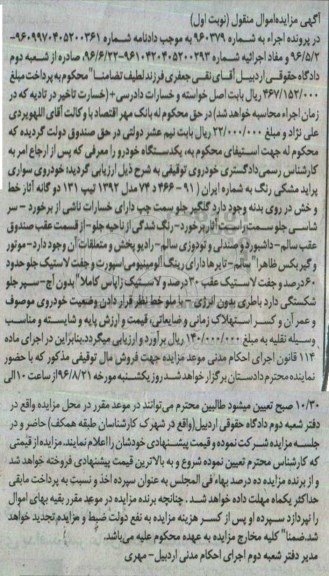 آگهی مزایده اموال منقول (نوبت اول)
در پرونده اجراء به شماره ۹۶۰۳۷۹ به موجب دادنامه شماره ۹۶۰۹۹۷۰۴۰۵۲۰۰۳۶۱-
۹۶/۵/۲ و مفاد اجرائیه شماره ۹۶۱۰۴۲۰۴۰۵۲۰۰۲۹۳-۹۶/۶/۲۲ صادره از شعبه دوم
دادگاه حقوقی اردبیل آقای نقی جعفری فرزند لطیف تضامنا" محکوم به پرداخت مبلغ
۴۶۷/۱۵۲/۰۰۰ ریال بابت اصل خواسته و خسارات دادرسی+(خسارت تاخیر در تادیه که در
زمان اجراء محاسبه خواهد شد) در حق محکوم له بانک مهر اقتصاد با وکالت آقای اللهویردی
علی نژاد و مبلغ ۲۲/۰۰۰/۰۰۰ ریال بابت نیم عشر دولتی در حق صندوق دولت گردیده که
محکوم له جهت استیفای محکوم به، یکدستگاه خودرو را معرفی که پس از ارجاع امر به
کارشناس رسمی دادگستری خودروی توقیفی به شرح ذیل ارزیابی گردید؛ خودروی سواری
پراید مشکی رنگ به شماره ایران (۹۱-۴۶۶ د ۷۴ مدل ۱۳۹۲ تیپ ۱۳۱ دو گانه آثار خط
و خش در روی بدنه وجود دارد گلگیر جلو سمت چپ دارای خسارات ناشی از برخورد - سر
شاسی جلو سمت راست آثار برخورد- رنگ شدگی از ناحیه جلو- از قسمت عقب صندوق
عقب سالم- داشبورد و صندلی و تودوزی سالم- رادیو پخش و متعلقات آن وجود دارد- موتور
و گیربکس ظاهرا" سالم- تایرها دارای رینگ آلومینیومی اسپورت و جفت لاستیک جلو حدود
۶۰ درصد و جفت لاستیک عقب ۳۰ درصد و لاستیک زاپاس کاملا" بدون آج- سپر جلو
شکستگی دارد باطری بدون انرژی - با ملحوظ نظر قرار دادن وضعیت خودروی موصوف
و عمر آن و کسر استهلاک زمانی و ضایعاتی، قیمت و ارزش پایه و شایسته و مناسب
وسیله نقلیه به مبلغ ۱۴۰/۰۰۰/۰۰۰ ریال برآورد و ارزیابی میگردد. بنابراین در اجرای ماده
۱۱۴ قانون اجرای احکام مدنی موعد مزایده جهت فروش مال توقیفی مذکور که با حضور
نماینده محترم دادستان برگزار خواهد شد روز یکشنبه مورخه ۹۶/۸/۲۱ از ساعت ۱۰ الی
۱۰/۳۰ صبح تعیین میشود طالبین محترم می‌توانند در موعد مقرر در محل مزایده واقع در
دفتر شعبه دوم دادگاه حقوقی اردبیل(واقع در شهرک کارشناسان طبقه همکف) حاضر و در
جلسه مزایده شرکت نموده و قیمت پیشنهادی خودشان را اعلام نمایند. مزایده از قیمتی
که کارشناس محترم تعیین نموده شروع و به بالاترین قیمت پیشنهادی فروخته خواهد شد
و از برنده مزایده ده درصد بهاء فی المجلس به عنوان سپرده اخذ و نسبت به پرداخت مابقی
حداکثر یکماه مهلت داده خواهد شد . چنانچه برنده مزایده در موعد مقرر بقیه بهای اموال
را نپردازد سپرده او پس از کسر هزینه مزایده به نفع دولت ضبط و مزایده تجدید خواهد
شد. ضمنا" کلیه مخارج مزایده به عهده محکوم علیه می‌باشد.
مدیر دفتر شعبه دوم اجرای احکام مدنی اردبیل- مهری